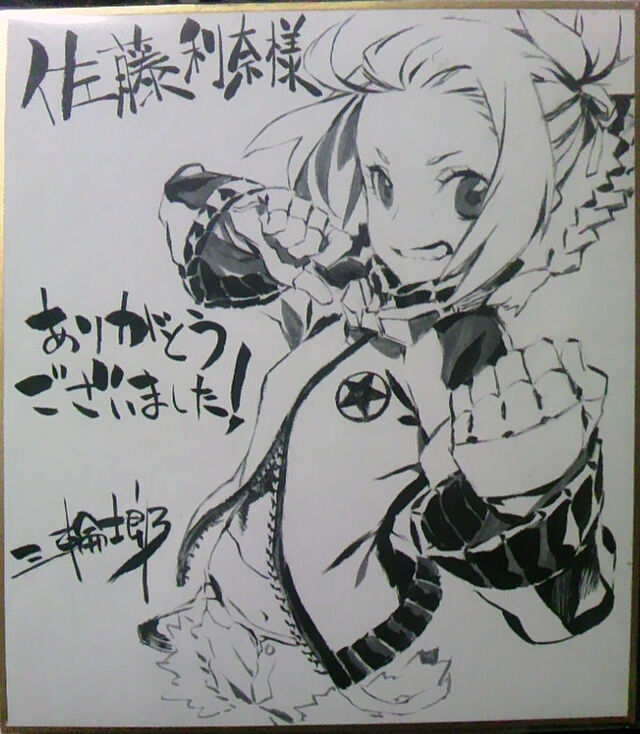 佐藤利奈様
ありがとう
ございました!
三輪士郎